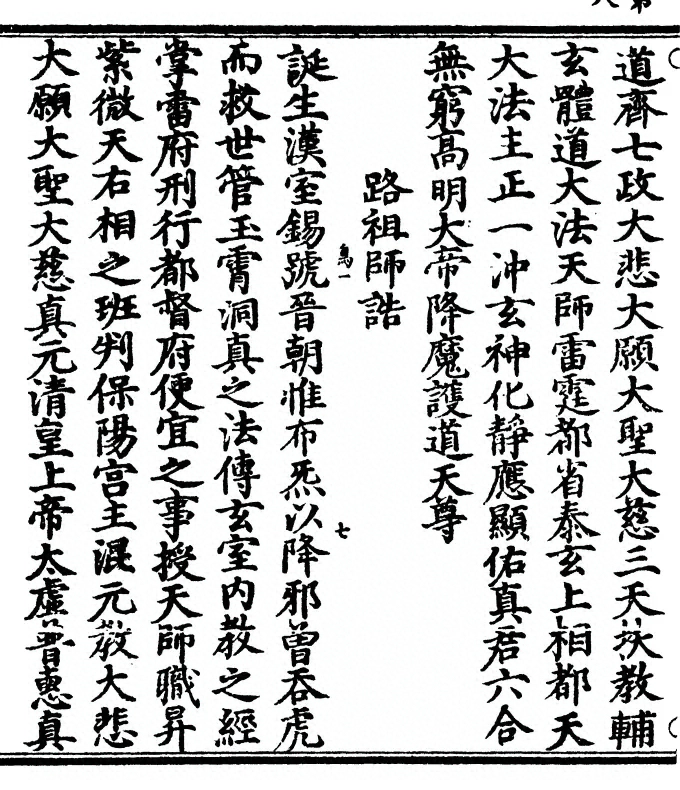 道齊七政大悲大願大聖大慈三天扶教輔
玄體道大法天師雷霆都省泰玄上相都天
大法主正一沖玄神化靜應顯佑真君六合
無窮高明大帝降魔護道天尊
路祖師誥
誕生漢室錫號晉朝惟布炁以降邪曾吞虎
而救世管玉霄洞真之法傳玄室内教之經
掌雷府刑行都督府便宜之事授天師職昇
紫微天右相之班判保陽宮主混元教大悲
大願大聖大慈真元清皇上帝太虛普惠真